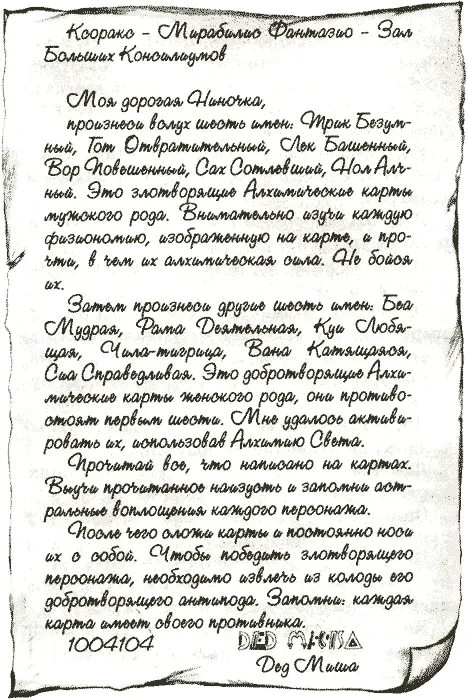 Ксоракс - Мирабилис Фантазио - Зал
Больших Консилиумов
Моя дорогая Ниночка,
произнеси вслух шесть имен: Трик Безум-
ный, Гот Отвратительный, Лек Башенный,
Вор Повешенный, Сах Сотлевший, Нол Алч-
ный. Это злотворящие Алхимические карты
мужского рода. Внимательно изучи каждую
физиономию, изображенную на карте, и про-
чти, в чем их алхимическая сила. Не бойся
их.
Затем произнеси другие шесть имен: Беа
Мудрая, Рама Деятельная, Куи Любя-
щая, Чила-тигрица, Вана Катящаяся,
Сиа Справедливая. Это добротворящие Алхи-
мические карты женского рода, они противо-
стоят первым шести. Мне удалось активи-
ровать их, использовав Алхимию Света.
Прочитай все, что написано на картах.
Выучи прочитанное наизусть и запомни аст-
ральные воплощения каждого персонажа.
После чего сложи карты и постоянно носи
их с собой. Чтобы победить злотворящего
персонажа, необходимо извлечь из колоды его
добротворящего антипода. Запомни: каждая
карта имеет своего противника.
1004104 DED MISA
Дед Миша